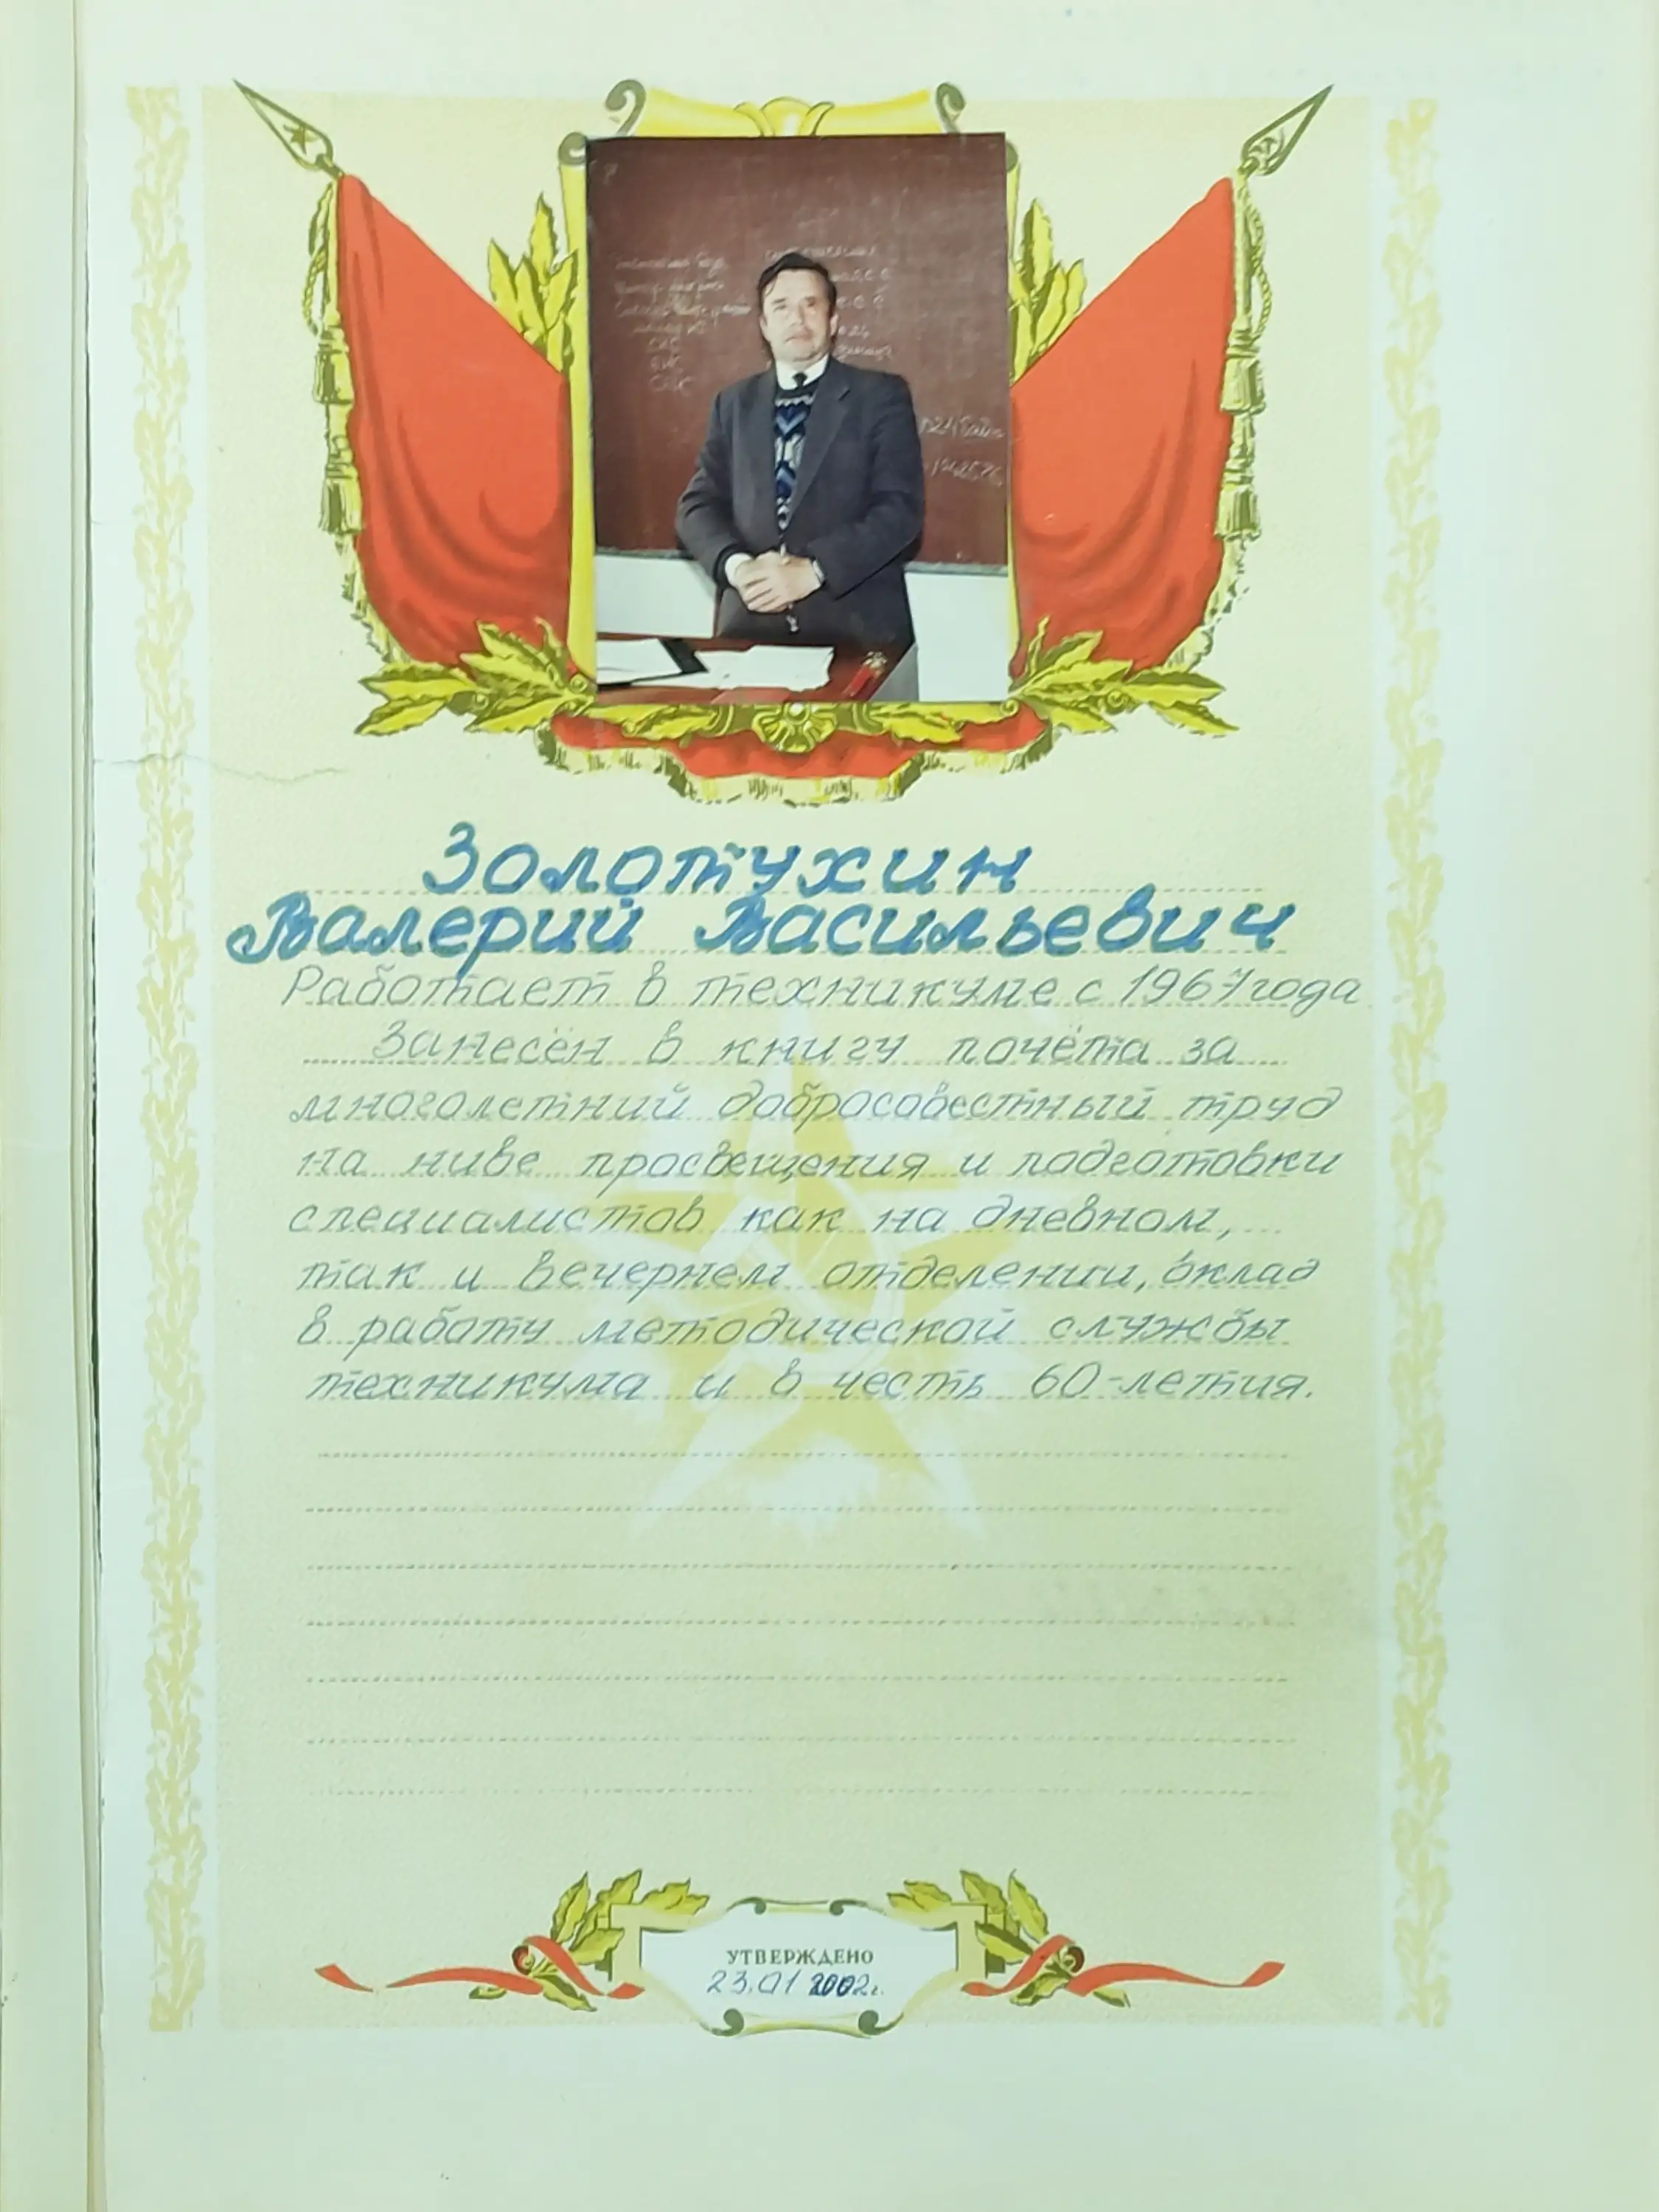 1024 байт
Золотухин
Валерий Васильевич
Работает в техникуме с 1967 года
Занесён в книгу почёта за
многолетний добросовестный труд
на ниве просвещения и подготовки
специалистов как на дневном,
так и вечернем отделении, вклад
в работу методической службы
техникума и в честь 60-летия.
УТВЕРЖДЕНО
23.01 2002г.